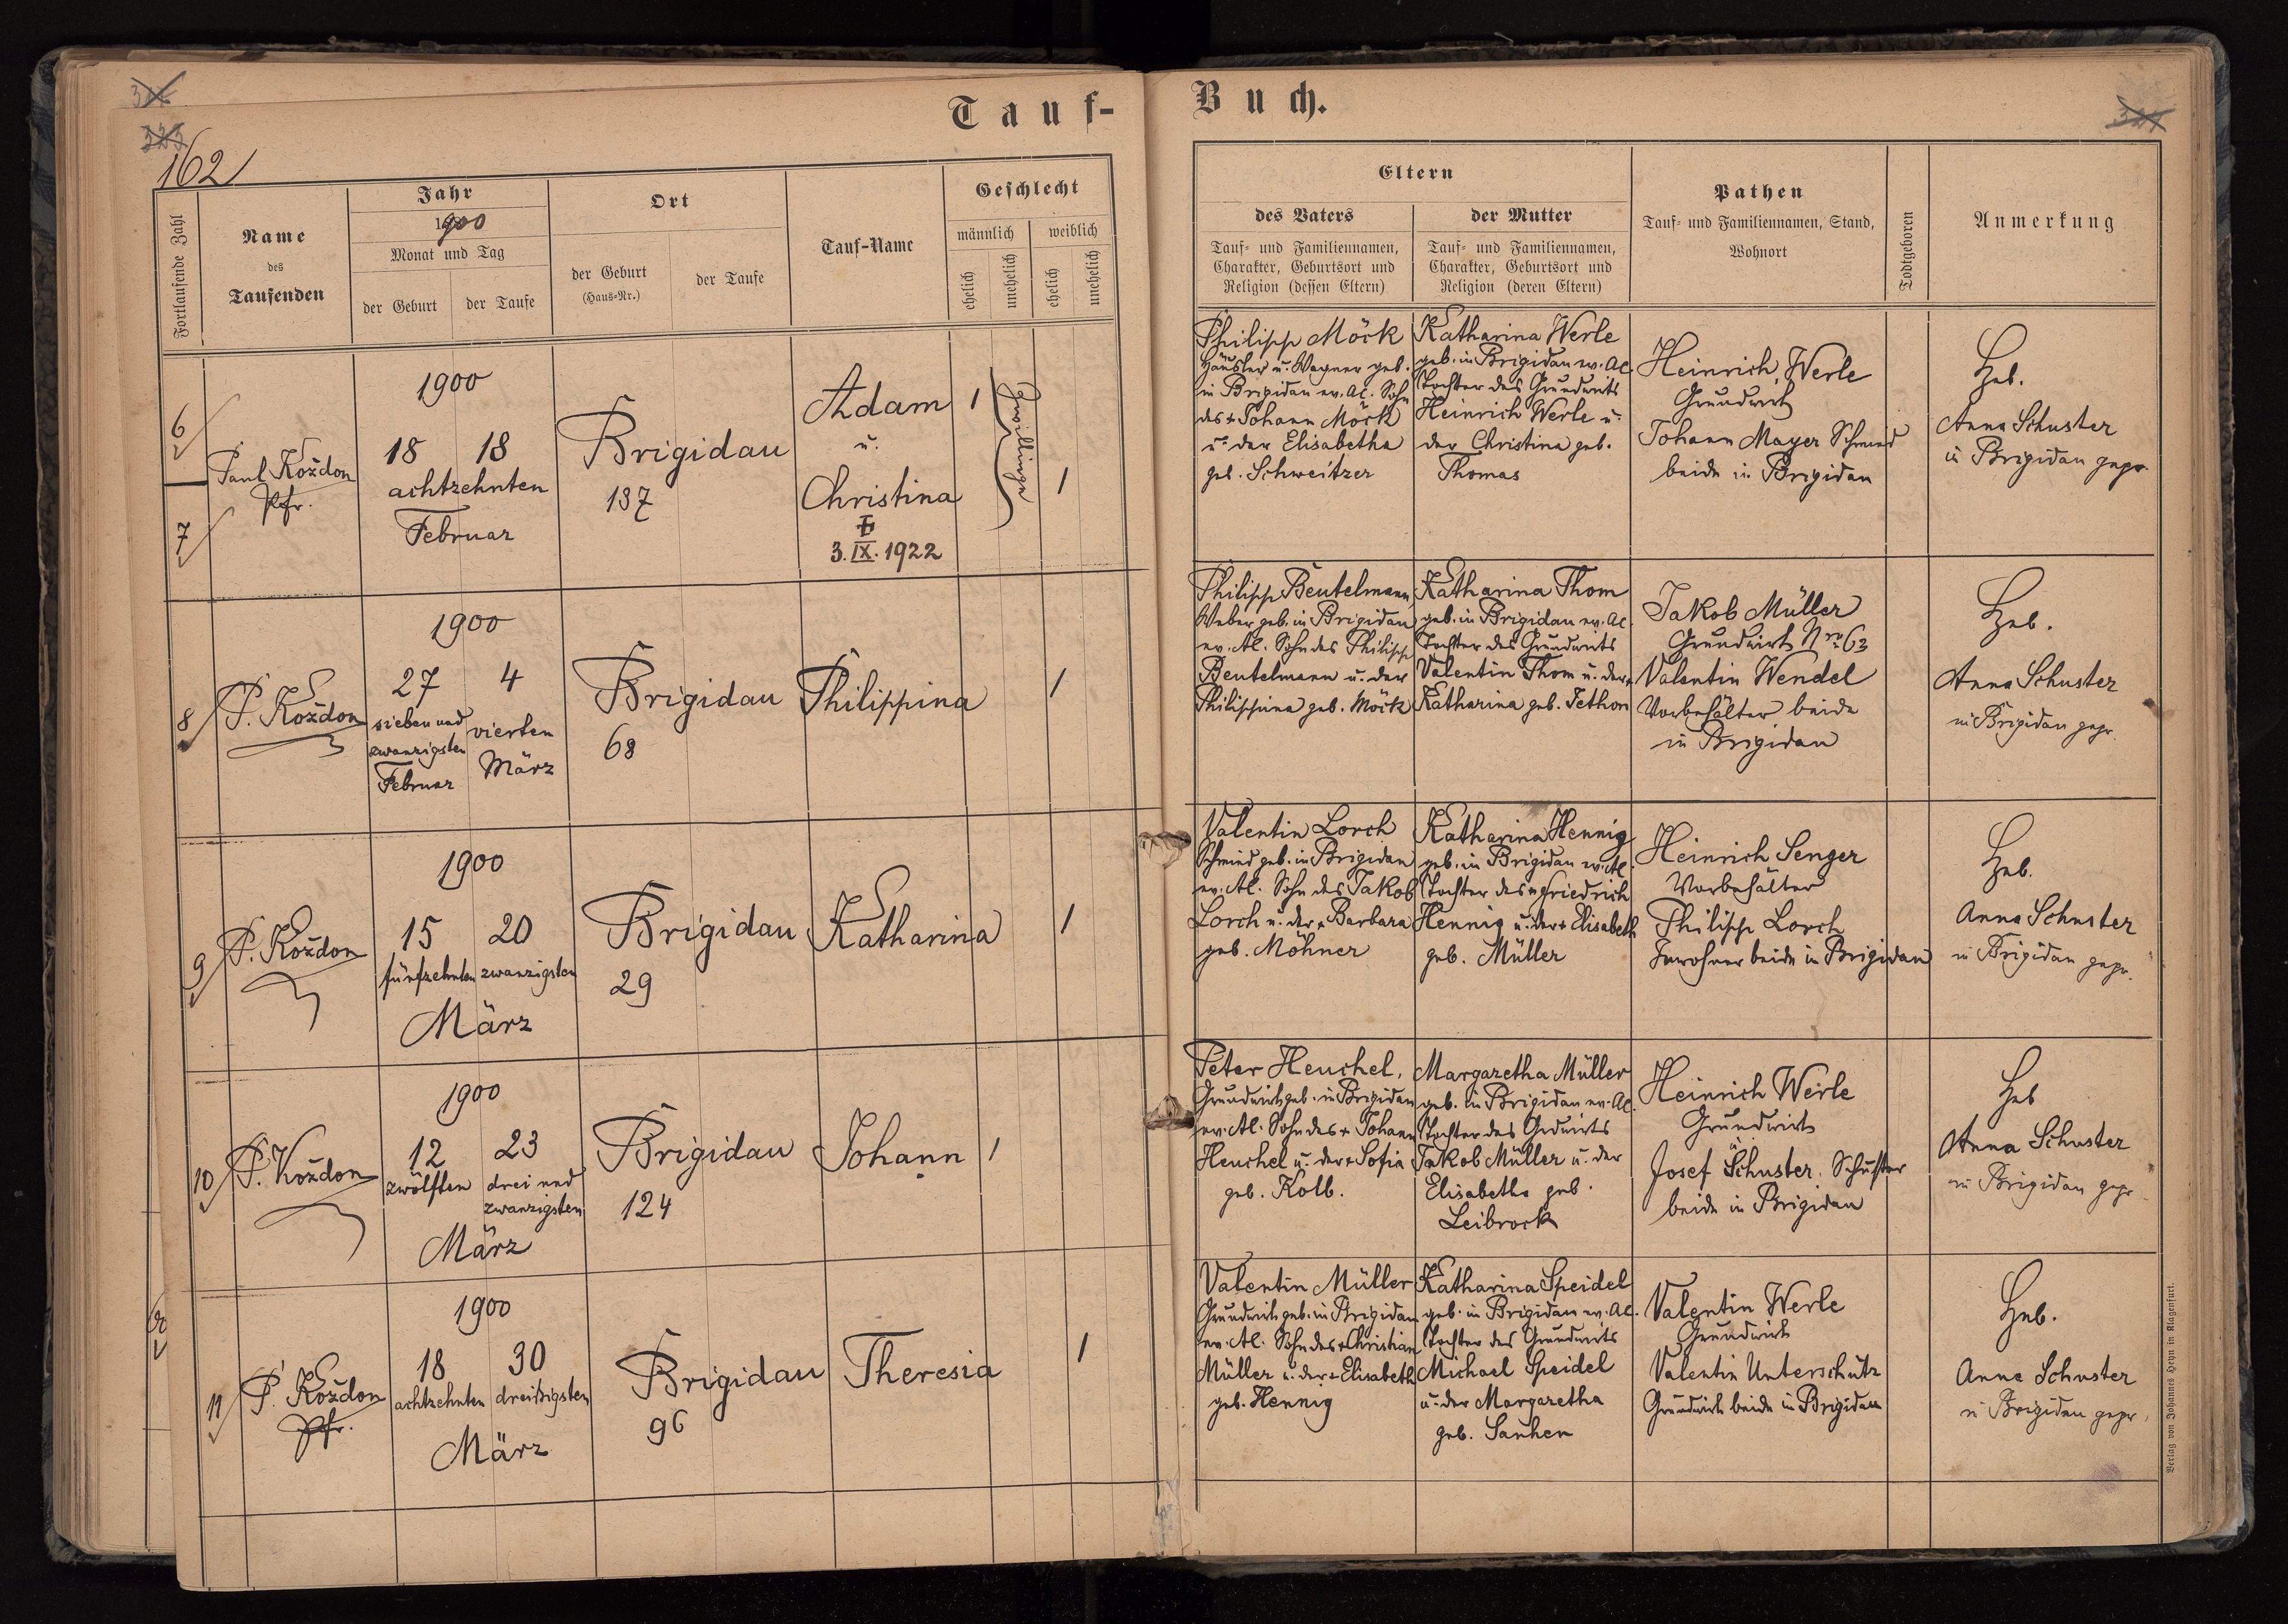 Tauf-
Buch.
162
Fortlaufende Zahl
Name
des
Taufenden
Jahr
1900
Monat und Tag
der Geburt
der Taufe
Ort
der Geburt
(Haus-Nr.)
der Taufe
Tauf-Name
Geschlecht
männlich
weiblich
ehelich
unehelich
ehelich
unehelich
Eltern
des Vaters
Tauf- und Familiennamen,
Charakter, Geburtsort und
Religion (dessen Eltern)
der Mutter
Tauf- und Familiennamen,
Charakter, Geburtsort und
Religion (deren Eltern)
Pathen
Tauf- und Familiennamen, Stand,
Wohnort
Todtgeboren
Anmerkung
6
7
Paul Kożdon
Pfr.
1900
18 18
achtzehnten
Februar
Brigidau
137
Adam
u.
Christina
3. IX. 1922
1
Zwillinge
1
Philipp Möck
Häusler u. Wagner geb.
in Brigidau ev. A.C. Sohn
des + Johann Möck
u. der Elisabetha
geb. Schweitzer
Katharina Werle
geb. in Brigidau ev. A.C.
Tochter des Grundwirts
Heinrich Werle u.
der Christina geb.
Thomas
Heinrich Werle
Grundwirt
Johann Mayer Schmied
beide in Brigidau
Heb.
Anna Schuster
in Brigidau gepr.
8
P. Kożdon
1900
27 4
sieben und
zwanzigsten
Februar
vierten
März
Brigidau
68
Philippina
1
Philipp Beutelmann,
Weber geb. in Brigidau
ev. A.C. Sohn des Philipp
Beutelmann u. der
Philippina geb. Möck
Katharina Thom
geb. in Brigidau ev. A.C.
Tochter des Grundwirts
Valentin Thom u. der +
Katharina geb. Jethon
Jakob Müller
Grundwirt Nro 63
Valentin Wendel
Vorbehälter beide
in Brigidau
Heb.
Anna Schuster
in Brigidau gepr.
9
P. Kożdon
1900
15 20
fünfzehnten zwanzigsten
März
Brigidau
29
Katharina
1
Valentin Lorch
Schmied geb. in Brigidau
ev. A.C. Sohn des Jakob
Lorch u. der + Barbara
geb. Möhner
Katharina Hennig
geb. in Brigidau ev. A.C.
Tochter des + Friedrich
Hennig u. der + Elisabeth
geb. Müller
Heinrich Senger
Vorbehälter
Philipp Lorch
Inwohner beide in Brigidau
Heb.
Anna Schuster
in Brigidau gepr.
10
P. Kożdon
1900
12 23
zwölften
drei und
zwanzigsten
März
Brigidau
124
Johann
1
Peter Heuchel,
Grundwirt geb. in Brigidau
ev. A.C. Sohn des + Johann
Heuchel u. der + Sofia
geb. Kolb.
Margaretha Müller
geb. in Brigidau ev. A.C.
Tochter des Grdwirts
Jakob Müller u. der
Elisabetha geb.
Leibrock
Heinrich Werle
Grundwirt
u.
Josef Schuster, Schuster
beide in Brigidau
Heb
Anna Schuster
in Brigidau gepr
11
P. Kożdon
Pfr.
1900
18 30
achtzehnten dreißigsten
März
Brigidau
96
Theresia
1
Valentin Müller
Grundwirt geb. in Brigidau
ev. A.C. Sohn des + Christian
Müller u. der + Elisabeth
geb. Hennig
Katharina Speidel
geb. in Brigidau ev. A.C.
Tochter des Grundwirts
Michael Speidel
u. der Margaretha
geb. Sauhen
Valentin Werle
Grundwirt
Valentin Unterschütz
Grundwirt beide in Brigidau
Heb.
Anna Schuster
in Brigidau gepr.
Verlag von Johannes Heyn in Klagenfurt.